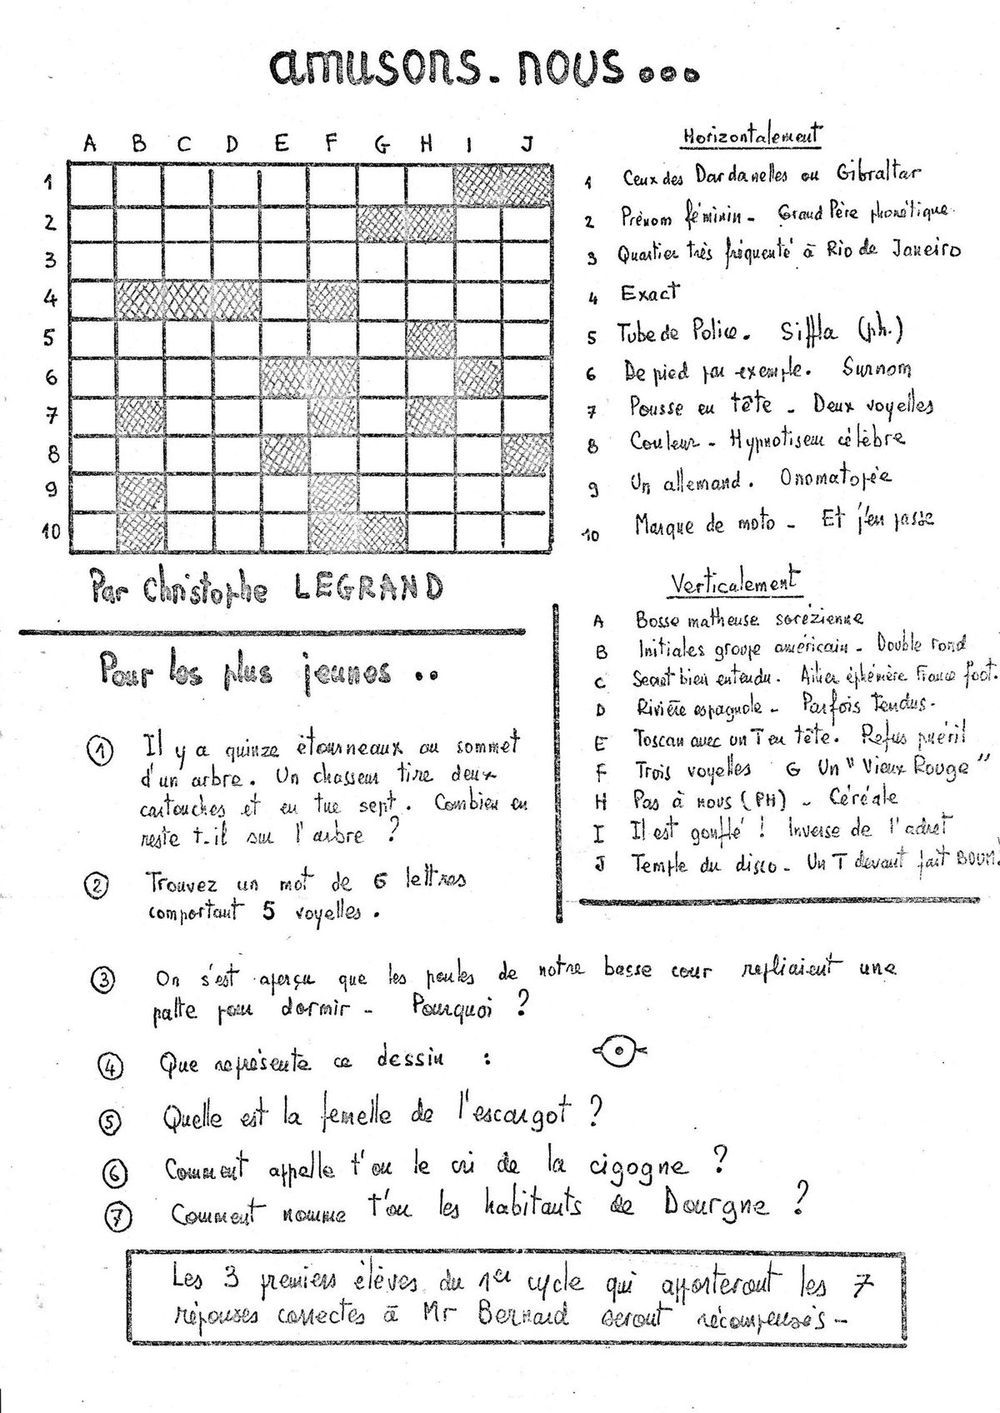 amusons. nous ...
A B C D E F G H I J
1
2
3
4
5
6
7
8
9
10
Horizontalement
1 Ceux des Dardanelles ou Gibraltar
2 Prénom féminin - Grand Père phonétique.
3 Quartier très fréquenté à Rio de Janeiro
4 Exact
5 Tube de Police. Siffla (ph.)
6 De pied par exemple. Surnom
7 Pousse en tête - Deux voyelles
8 Couleur - Hypnotiseur célèbre
9 Un allemand. Onomatopée
10 Marque de moto - Et j'en passe
Par Christophe LEGRAND
Verticalement
A Bosse matheuse sorézienne
B Initiales groupe américain - Double rond
C Secret bien entendu. Ailier éphémère France foot.
D Rivière espagnole - Parfois tendus.
E Toscan avec un T en tête. Refus puéril
F Trois voyelles G Un "Vieux Rouge"
H Pas à nous (PH) - Céréale
I Il est gonflé ! Inverse de l'adret
J Temple du disco - Un T devant fait BOUM!
Pour les plus jeunes ..
1 Il y a quinze étourneaux au sommet
d'un arbre. Un chasseur tire deux
cartouches et en tue sept. Combien en
reste t-il sur l'arbre ?
2 Trouvez un mot de 6 lettres
comportant 5 voyelles.
3 On s'est aperçu que les poules de notre basse cour repliaient une
patte pour dormir - Pourquoi ?
4 Que représente ce dessin :
5 Quelle est la femelle de l'escargot ?
6 Comment appelle t'on le cri de la cigogne ?
7 Comment nomme t'on les habitants de Dourgne ?
Les 3 premiers élèves du 1er cycle qui apporteront les 7
réponses correctes à Mr Bernard seront récompensés -